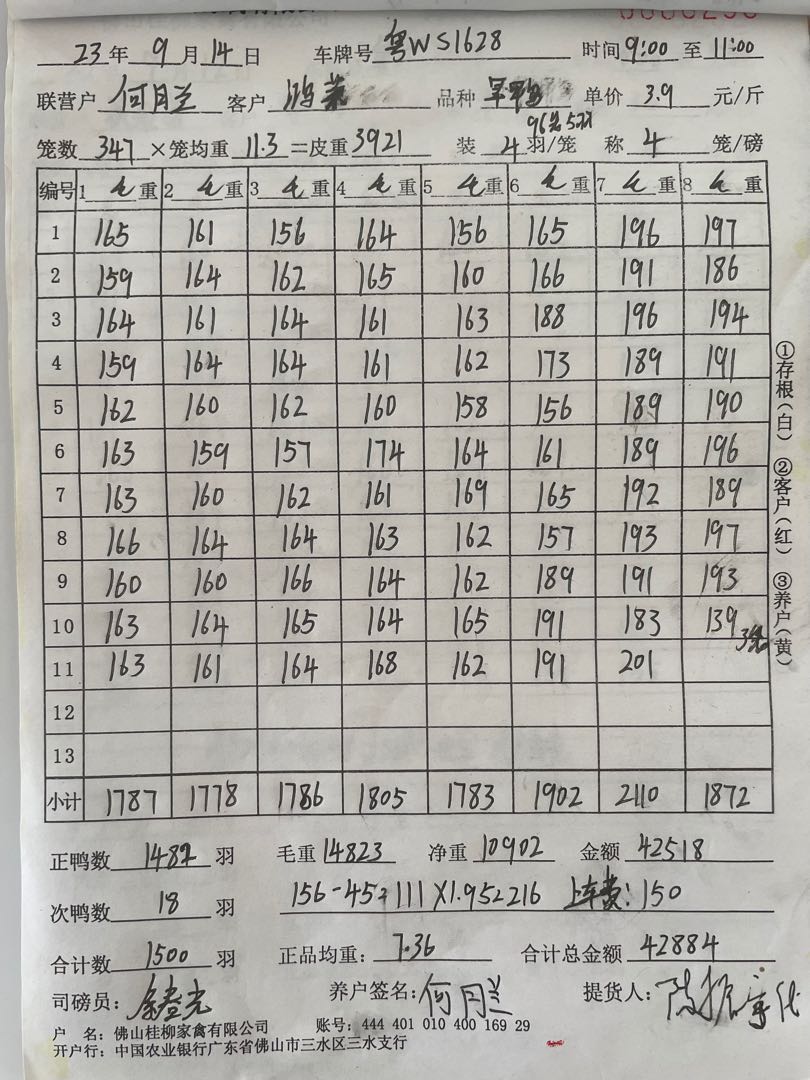 23 年 9 月 14 日 车牌号 粤WS1628 时间 9:00 至 11:00
联营户 何月兰 客户 鸿 品种 单价 3.9 元/斤
96笼5羽
笼数 347 ×笼均重 11.3 =皮重 3921 装 4 羽/笼 称 4 笼/磅
编号 1 毛 重 2 毛 重 3 毛 重 4 毛 重 5 毛 重 6 毛 重 7 毛 重 8 毛 重
1 165 161 156 164 156 165 196 197
2 159 164 162 165 160 166 191 186
3 164 161 164 161 163 188 196 194
4 159 164 164 161 162 173 189 191
5 162 160 162 160 158 156 189 190
6 163 159 157 174 164 161 189 196
7 163 160 162 161 169 165 192 189
8 166 164 164 163 162 157 193 197
9 160 160 166 164 162 189 191 193
10 163 164 165 164 165 191 183 139 3笼
11 163 161 164 168 162 191 201
12
13
小计 1787 1778 1786 1805 1783 1902 2110 1872
①存根(白) ②客户(红) ③养户(黄)
正鸭数 1482 羽 毛重 14823 净重 10902 金额 42518
次鸭数 18 羽 156-45=111×1.95=216 上车费:150
合计数 1500 羽 正品均重: 7.36 合计总金额 42884
司磅员: 养户签名: 何月兰 提货人: 陈振
户 名: 佛山桂柳家禽有限公司 账号: 444 401 010 400 169 29
开户行: 中国农业银行广东省佛山市三水区三水支行